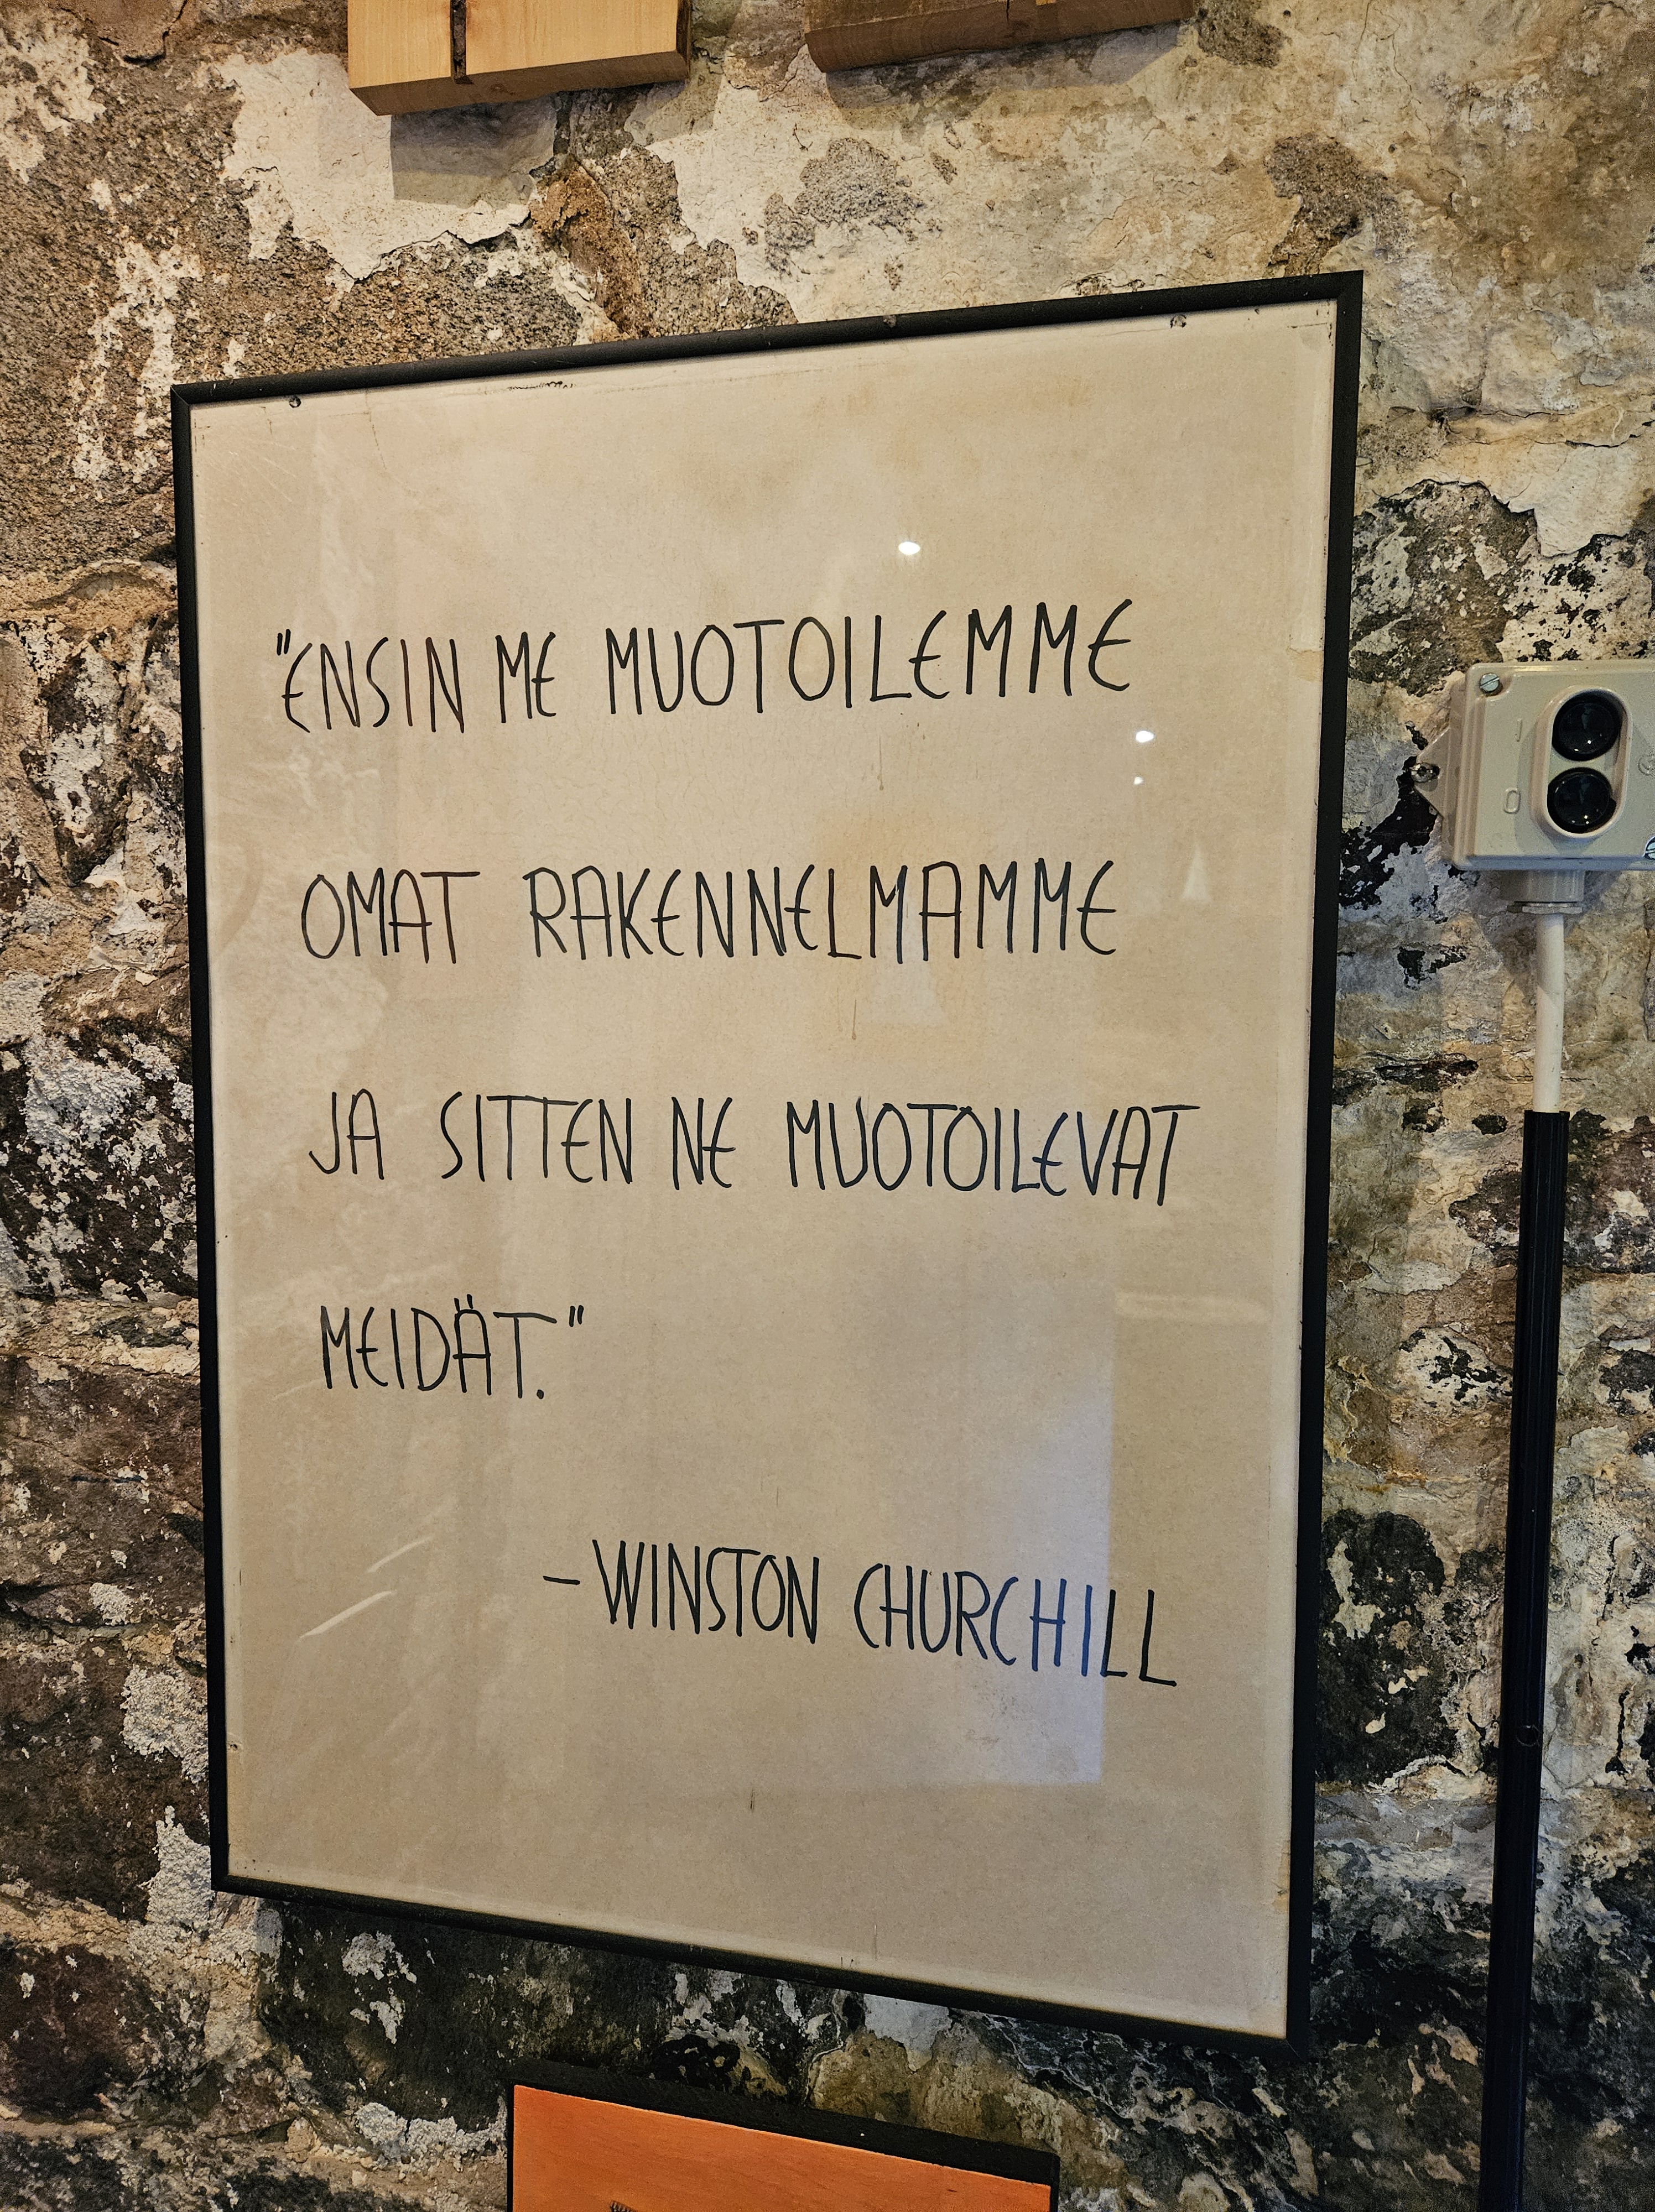 "ENSIN ME MUOTOILEMME
OMAT RAKENNELMAMME
JA SITTEN NE MUOTOILEVAT
MEIDÄT."
- WINSTON CHURCHILL
I
O